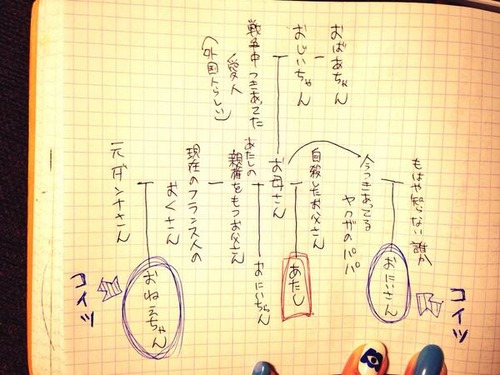 おばあちゃん
おじいちゃん
戦争中つきあってた
愛人
(外国人らしい)
もはや知らない誰か
今つきあってる
ヤクザのパパ
自殺したお父さん
お母さん
あたしの
親権をもつお父さん
現在のフランス人の
おくさん
元ダンナさん
コイツ
おにいさん
あたし
おにいちゃん
おねえちゃん
コイツ